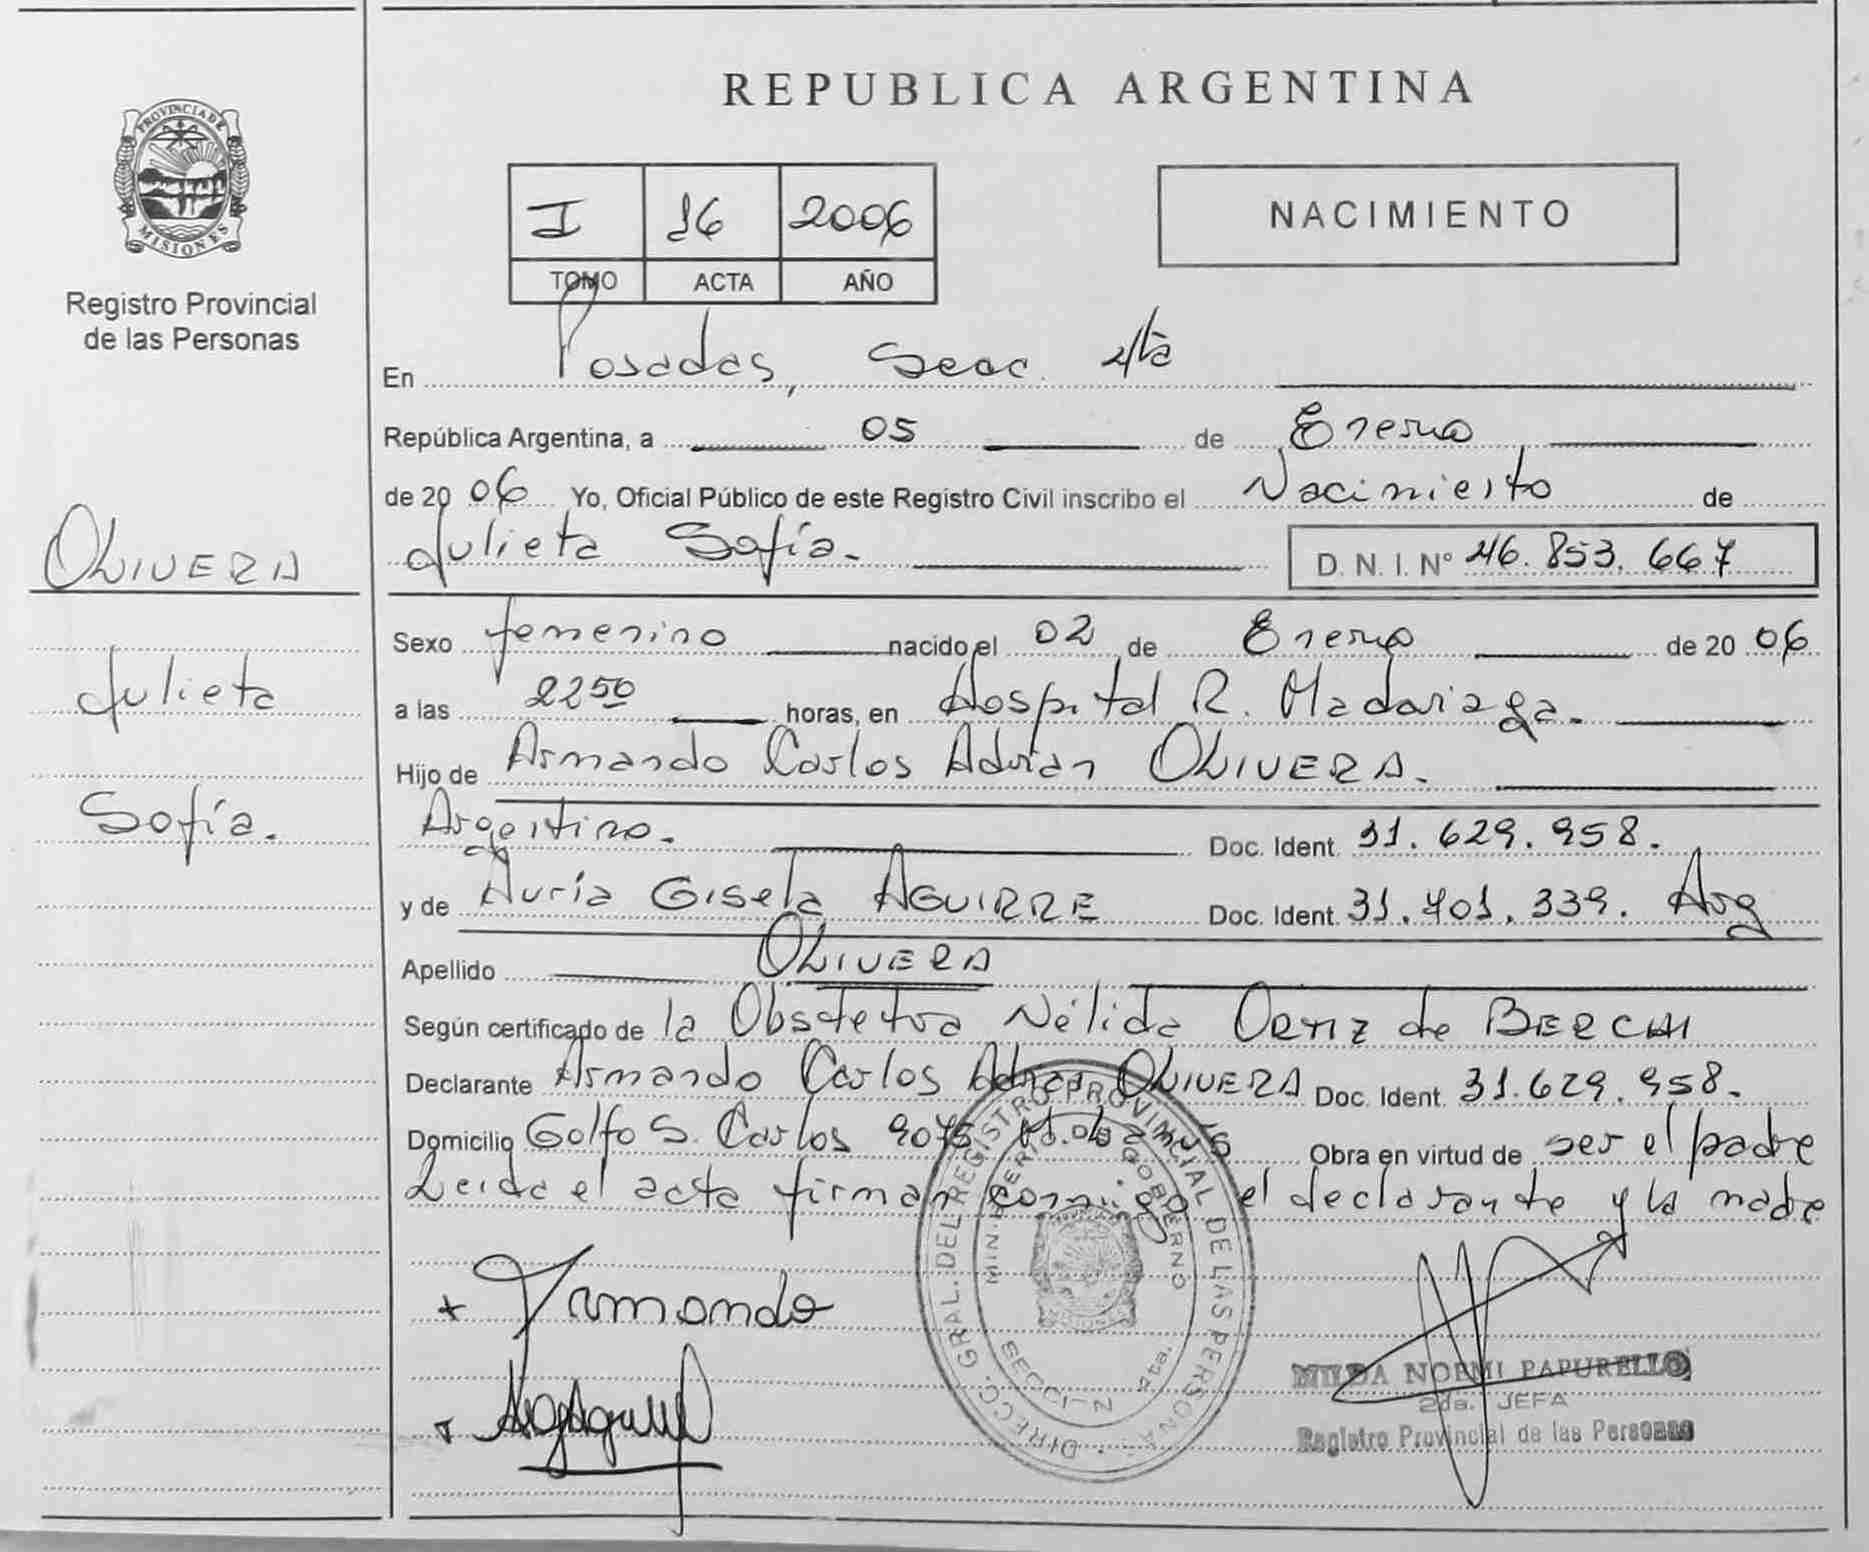 REPUBLICA ARGENTINA
PROVINCIA DE
MISIONES
Registro Provincial
de las Personas
I 16 2006
TOMO ACTA AÑO
NACIMIENTO
En Posadas, Secc. 4ta
República Argentina, a 05 de Enero
de 2006 Yo, Oficial Público de este Registro Civil inscribo el Nacimiento de
Julieta Sofía. D. N. I. Nº 46.853.667
OLIVERA
Julieta
Sofía.
Sexo femenino nacido el 02 de Enero de 2006
a las 22 50 horas, en Hospital R. Madariaga.
Hijo de Armando Carlos Adrián OLIVERA.
Argentino. Doc. Ident. 31.629.958.
y de Nuria Gisela AGUIRRE Doc. Ident. 31.401.339. Arg
Apellido OLIVERA
Según certificado de la Obstetra Nélida ORTIZ de
Declarante Armando Carlos Adrián OLIVERA Doc. Ident. 31.629.958.
Domicilio Golfo S. Carlos Obra en virtud de ser el padre
Leída el acta firman conmigo el declarante y la madre
Armando
DIRECC. GRAL. DEL REGISTRO PROVINCIAL DE LAS PERSONAS
MINISTERIO GOBIERNO
SECCION 4ta.
MILDA NOEMI PAPURELLO
2da. JEFA
Registro Provincial de las Personas